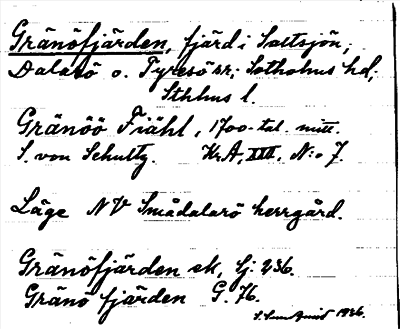 Gränöfjärden, fjärd i Saltsjön,
Dalarö o. Tyresö sn; Sotholms hd,
Sthlms l.
Gränöö Fiähl, 1700-tal. mitt.
S. von Schultz. Kr.A, XIII, N:o 7.
Läge NV Smådalarö herrgård.
Gränöfjärden ek, Sj. 236.
Gränö fjärden G. 76.
1936.